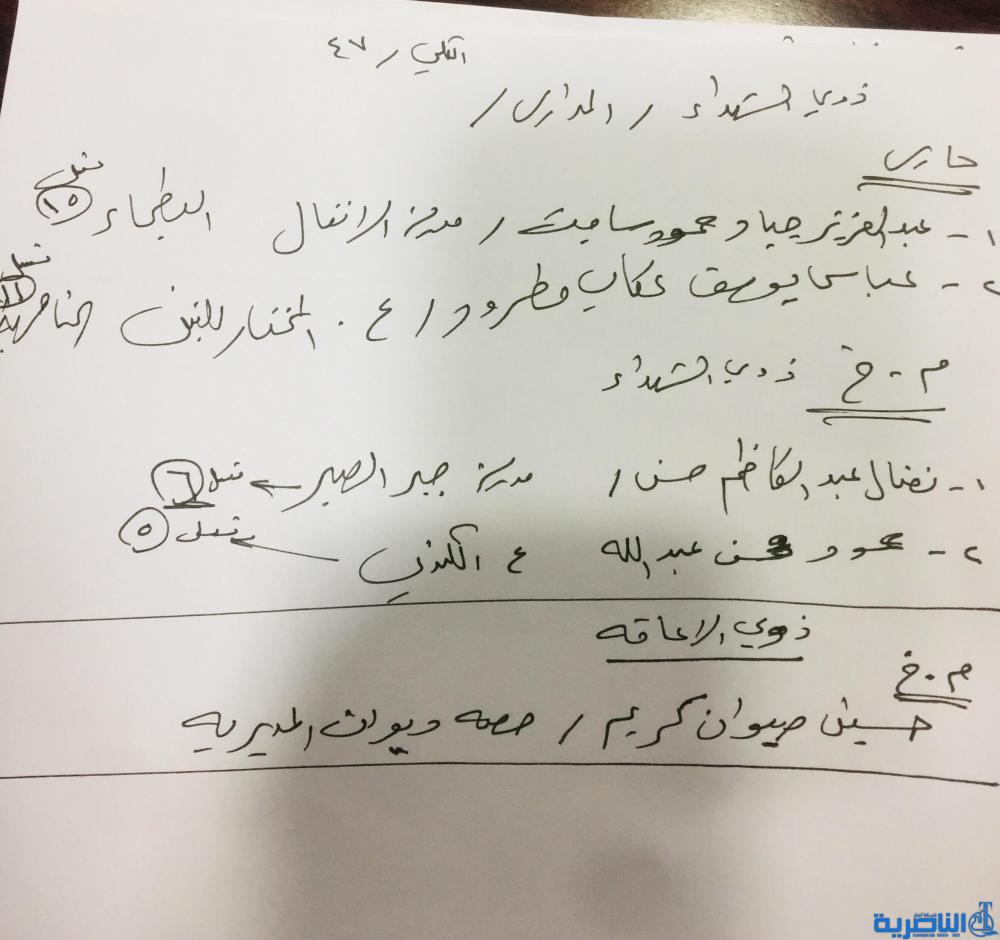 الكلي / ٤٧
ذوي الشهداء / المدارس /
حارس
١ - عبد العزيز جياد حمود سامت / مدرسة الانفال البطحاء تسلسل ١٥
٢ - عباس يوسف عكاب مطرود / ع . المختار للبنين الناصرية تسلسل ١١
م . خ ذوي الشهداء
١ - نضال عبد الكاظم حسن / مدرسة جبر الصبر تسلسل ٦
٢ - حمود حسن عبد الله ع الكندي تسلسل ٥
ذوي الاعاقه
م . خ
حسين صيوان كريم / حصه ديوان المديريه
الناصرية